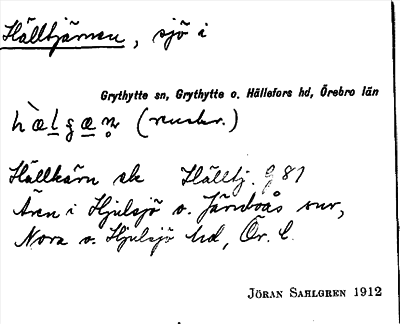 Hälltjärnen, sjö i
Grythytte sn, Grythytte o. Hällefors hd, Örebro län
(muskr.)
Hällkärn sk Hälltj. G 81
Även i Hjulsjö o. Järnboås snr,
Nora o. Hjulsjö hd, Ör. l.
JÖRAN SAHLGREN 1912